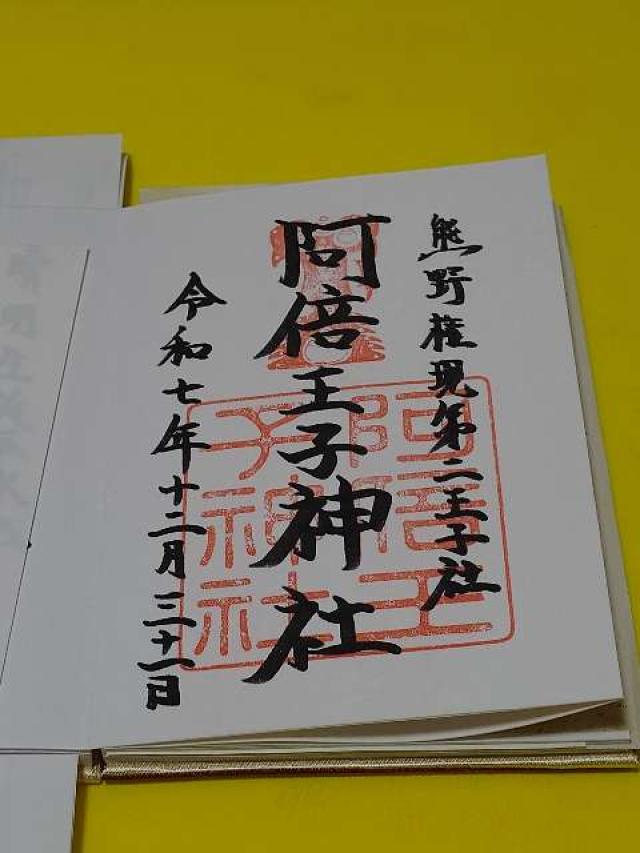 熊野権現第二王子社
阿倍王子神社
令和七年十二月三十一日
阿倍王
子神社